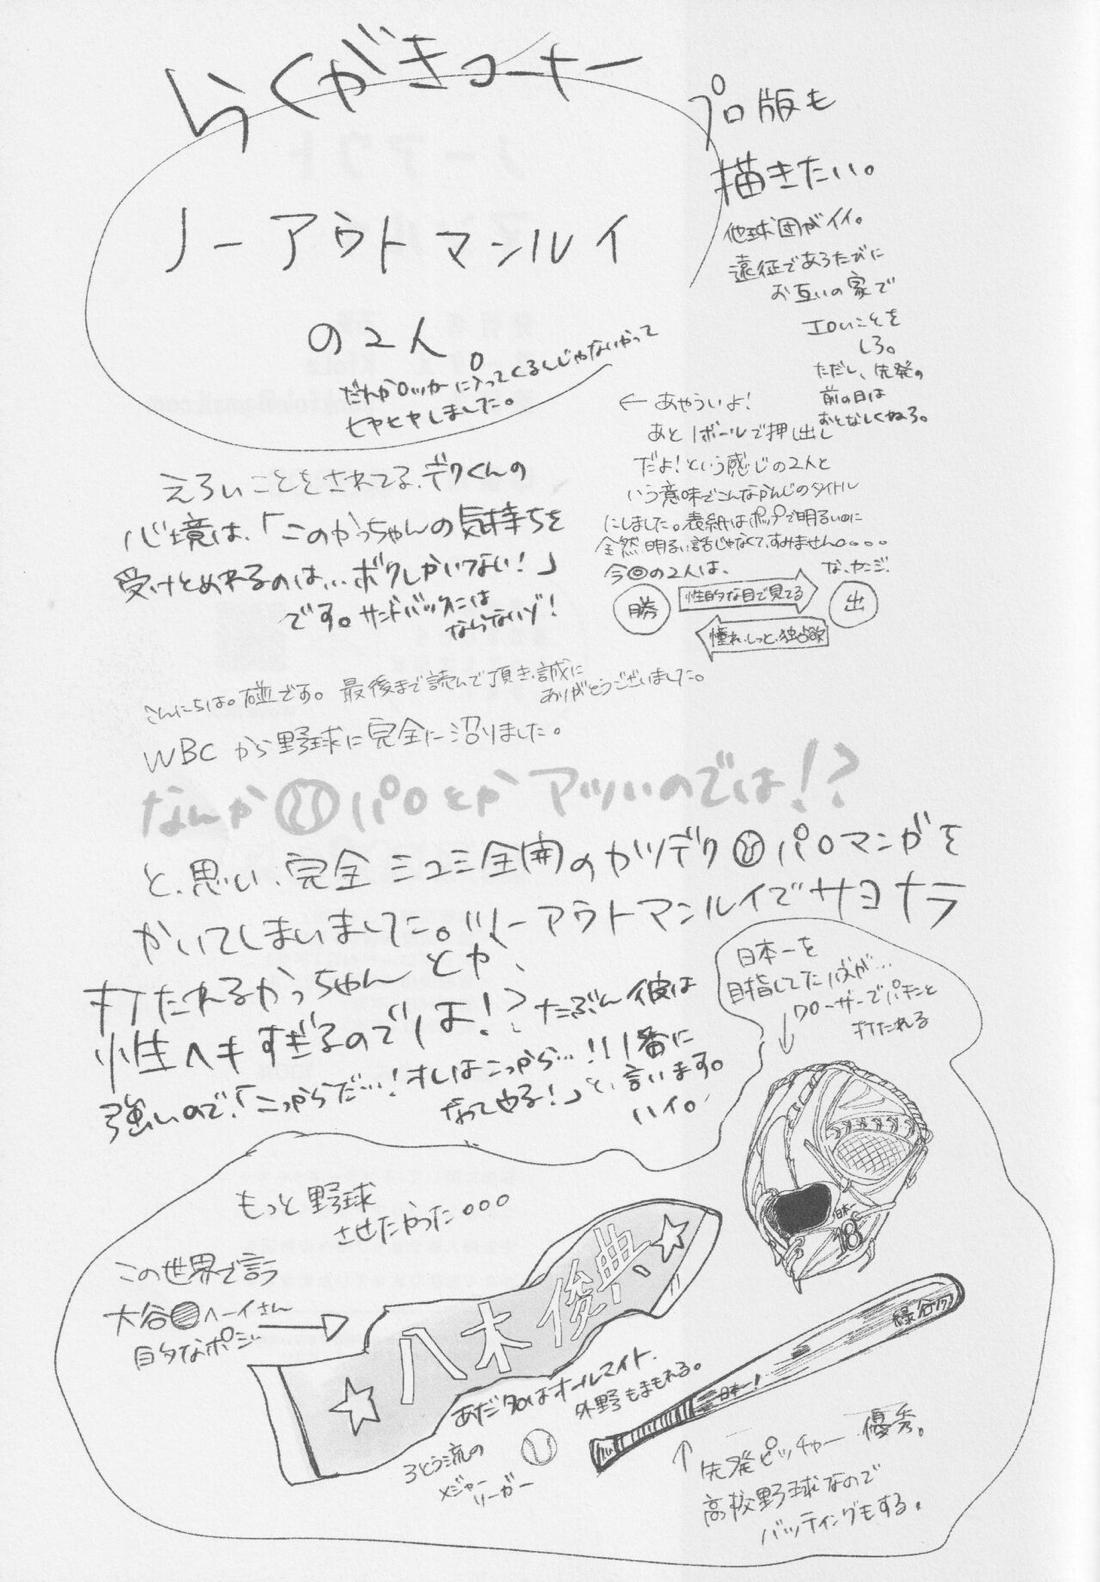 らくがきコーナー
ノーアウトマンルイ
の2人。
だれかロッカーに入ってくるんじゃないかって
ヒヤヒヤしました。
プロ版も
描きたい。
他球団がイイ。
遠征であうたびに
お互いの家で
エロいことを
しろ。
ただし、先発の
前の日は
おとなしくねろ。
← あやういよ!
あと1ボールで押し出し
だよ!という感じの2人と
いう意味でこんなかんじのタイトル
にしました。表紙はポップで明るいのに
全然明るい話じゃなくてすみません。。。。
今回の2人は、
な、カンジ。
勝
性的な目で見てる
出
憧れ、しっと、独占欲
えろいことをされてる、デクくんの
心境は、「このかっちゃんの気持ちを
受けとめれるのは…ボクしかいない!」
です。サンドバックには
ならないゾ!
こんにちは。碰です。最後まで読んで頂き、誠に
ありがとうございました。
WBCから野球に完全に沼りました。
なんか パロとかアツいのでは!?
と、思い、完全ミユミ全開のカツデク パロマンガを
かいてしまいました。ノーアウトマンルイでサヨナラ
打たれるかっちゃんとか、
性ヘキすぎるのでは!?たぶん彼は
強いので、「こっからだ…!オレはこっから…!!1番に
なってやる!」と、言います。
ハイ。
日本一を
目指してたハズが…
クローザーでパキンと
打たれる
日本一
18
もっと野球
させたかった。。。
この世界で言う
大谷 ヘーイさん
的なポジ
八木俊典
あだ名はオールマイト。
外野もまもれる。
3とう流の
メジャー
リーガー
緑谷
日本一!
先発ピッチャー 優秀。
高校野球なので
バッティングもする。